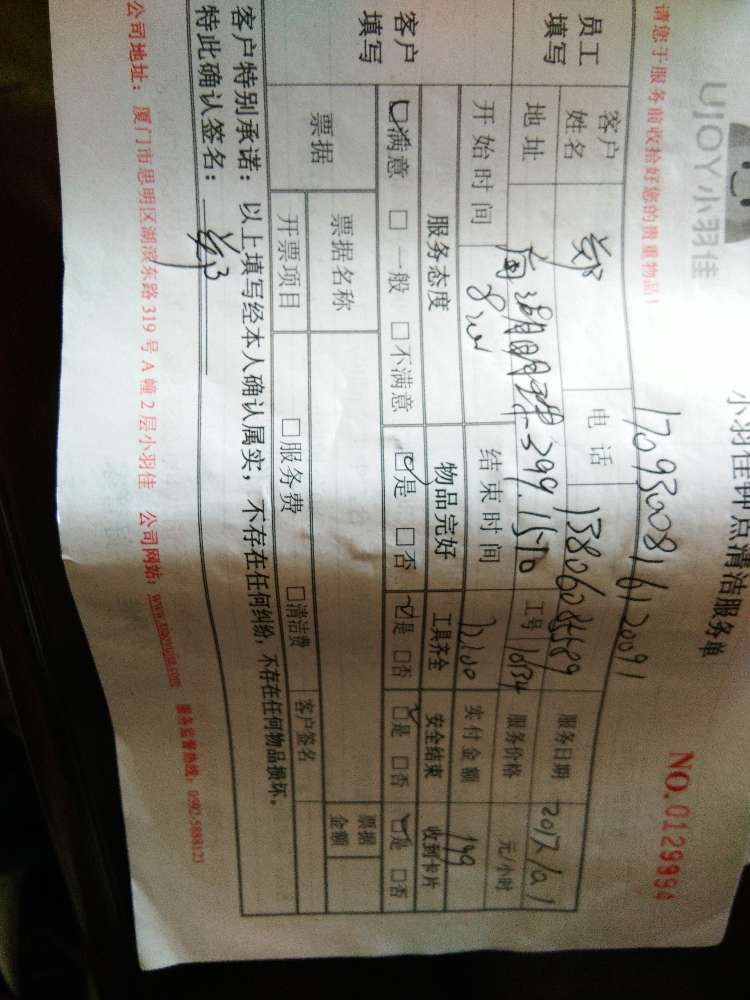 UJOY小羽佳
小羽佳钟点清洁服务单
NO.0129994
请您于服务前收拾好您的贵重物品!
1709300816120091
员工填写
客户姓名 郑 电话 服务日期
地址 工号 10134 服务价格 元/小时
开始时间 结束时间 实付金额 199
客户填写
服务态度 物品完好 工具齐全 安全结束 收到卡片
□满意 □一般 □不满意 □是 □否 □是 □否 □是 □否 □是 □否
票据 票据名称 票据金额
开票项目 □服务费 □清洁费 客户签名
客户特别承诺：以上填写经本人确认属实，不存在任何纠纷，不存在任何物品损坏。
特此确认签名：郑
公司地址：厦门市思明区湖滨东路319号A幢2层小羽佳 公司网站：www.xiaoyujia.com 服务监督热线：0592-5888123